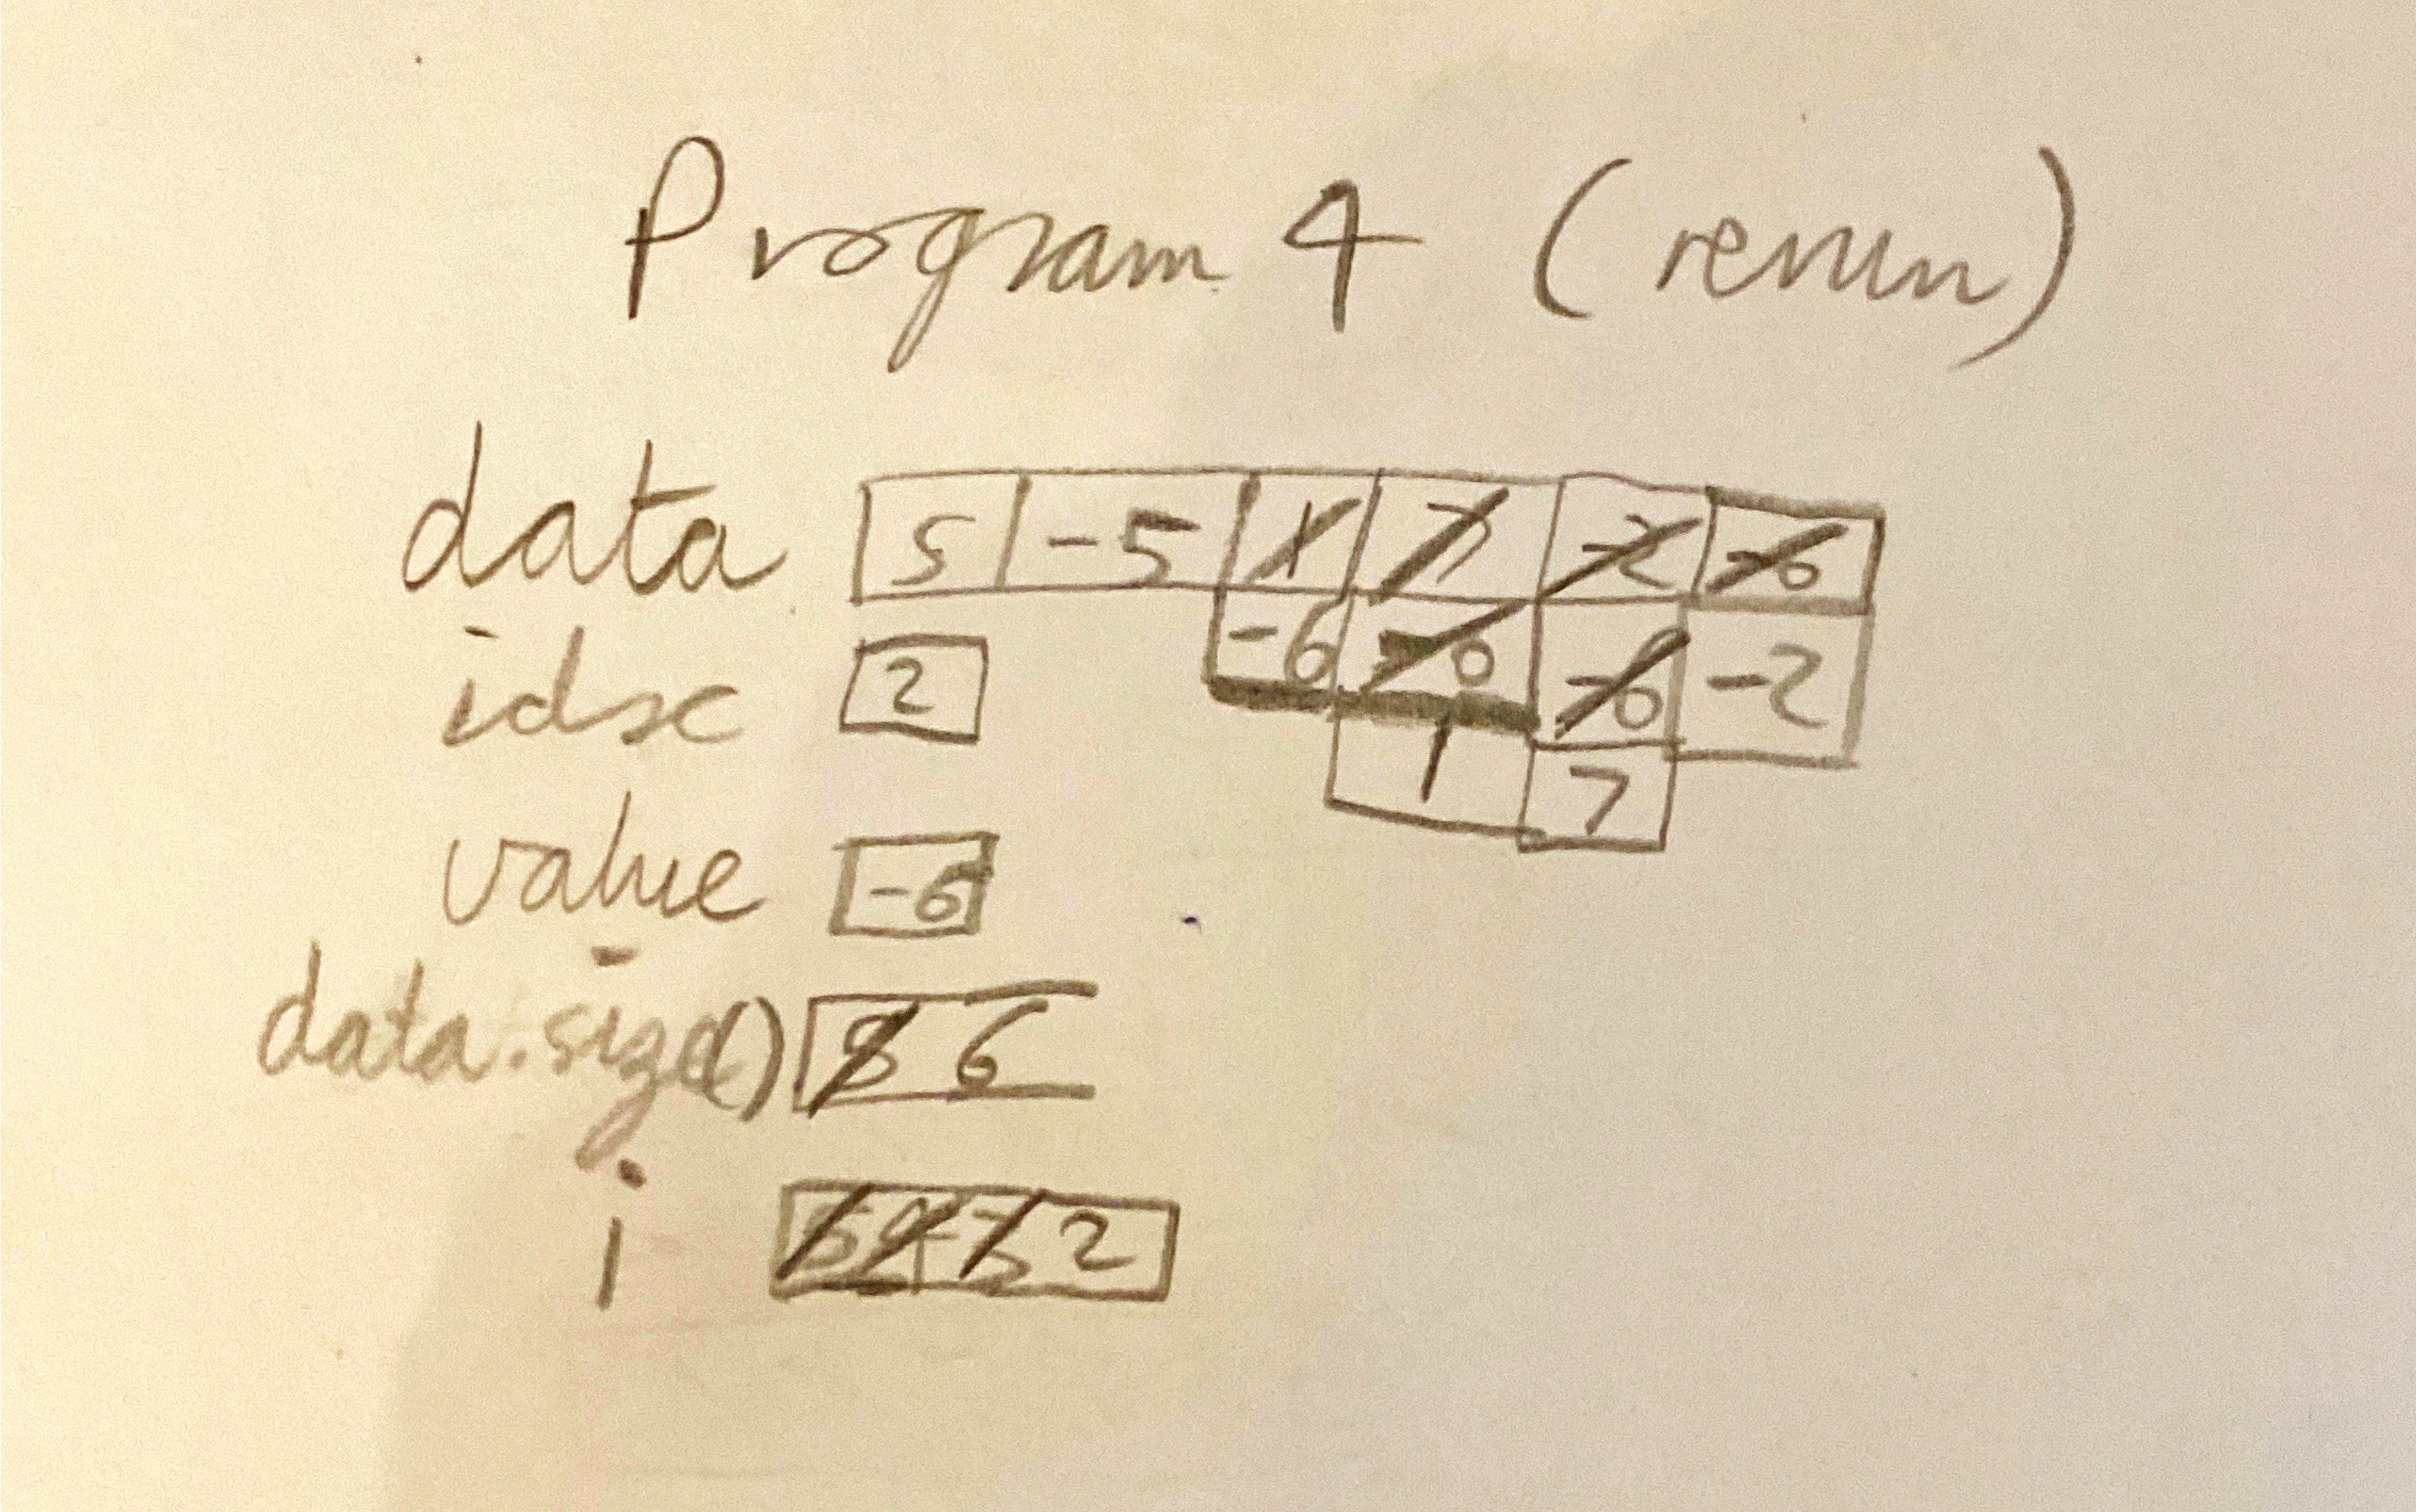 Program 4 (rerun)
data 5 -5 1 7 -2 -6
-6 -6 -6 -2
idx 2
1 7
value -6
data.size() 6
i 5 4 3 2